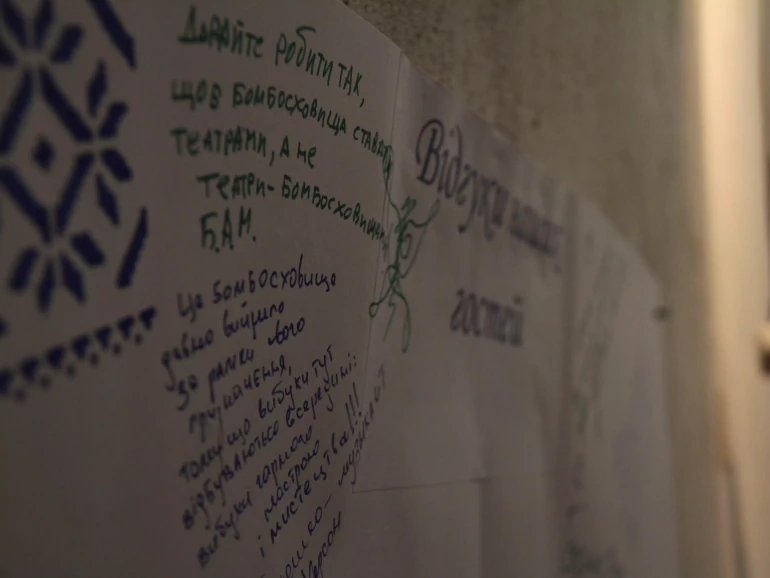 ДАВАЙТЕ РОБИТИ ТАК,
ЩОБ БОМБОСХОВИЩА СТАВАЛИ
ТЕАТРАМИ, А НЕ
ТЕАТРИ-БОМБОСХОВИЩАМИ
Б.А.М.
Це бомбосховище
давно вийшло
за рамки свого
призначення,
тому що вибухи тут
відбуваються всередині:
вибухи гарного
настрою
і мистецтва!!!
музыкант
Херсон
Відгуки наших
гостей